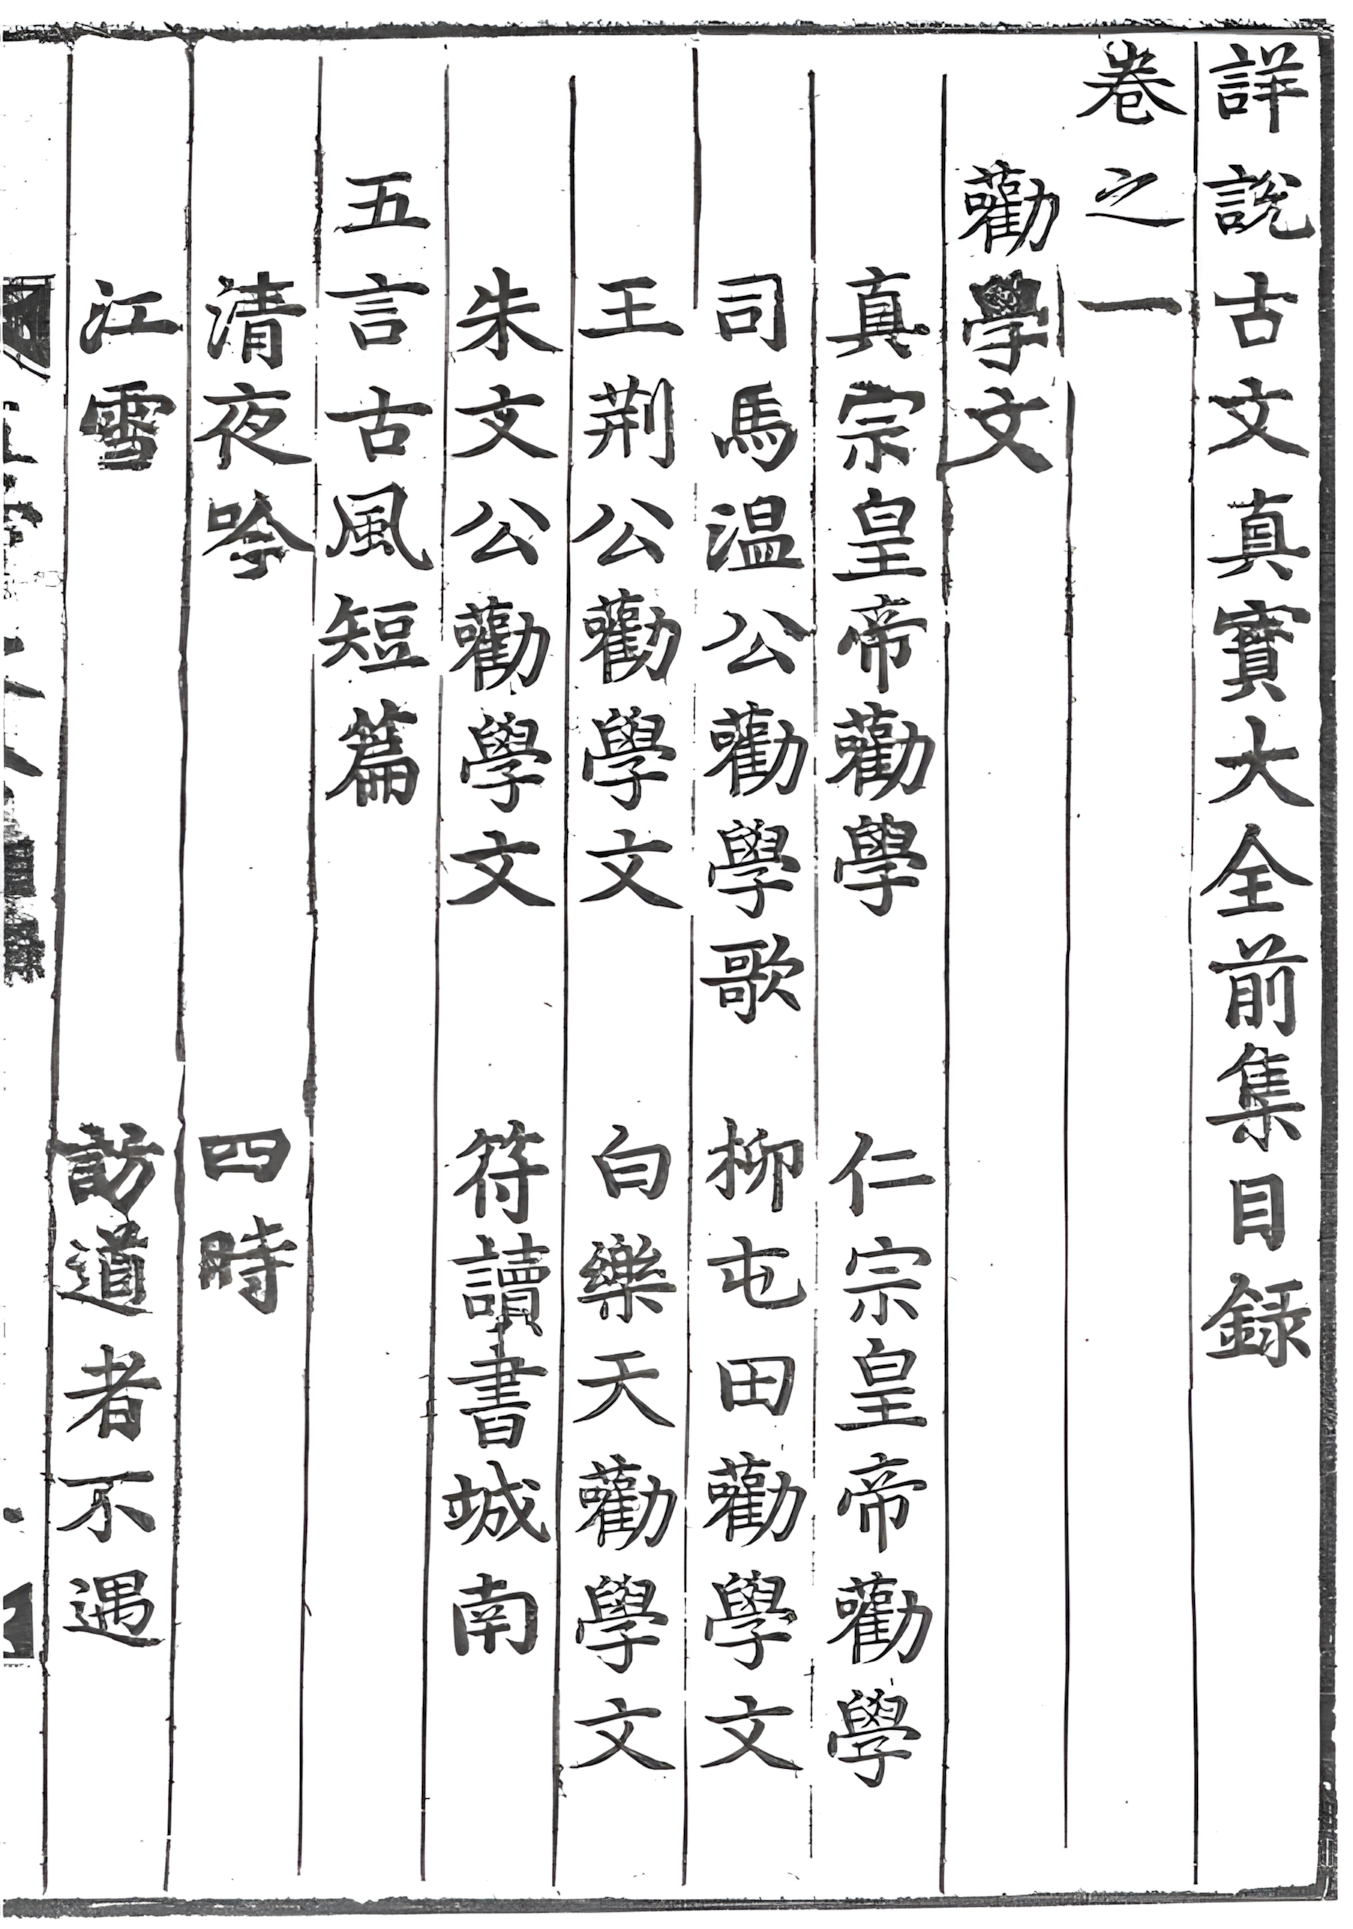 詳說古文真寶大全前集目録
卷之一
勸學文
真宗皇帝勸學 仁宗皇帝勸學
司馬溫公勸學歌 柳屯田勸學文
王荊公勸學文 白樂天勸學文
朱文公勸學文 符讀書城南
五言古風短篇
清夜吟 四時
江雪 訪道者不遇